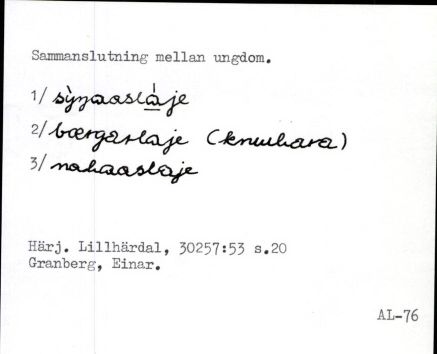 Sammanslutning mellan ungdom.
1/
2/ bærgaslaje
3/
Härj. Lillhärdal, 30257:53 s.20
Granberg, Einar.
AL-76